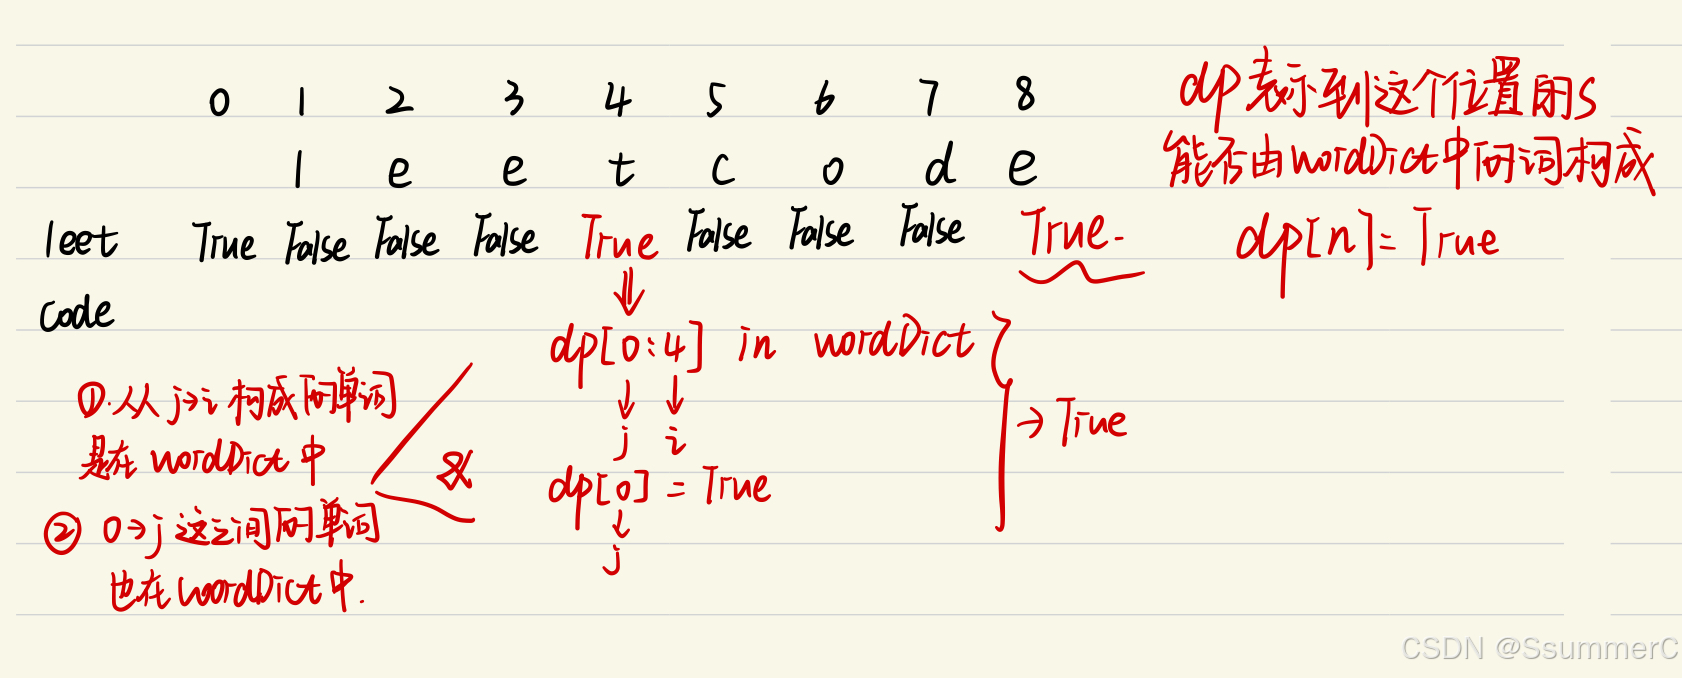 0 1 2 3 4 5 6 7 8
l e e t c o d e
leet True False False False True False False False True
code
dp表示到这个位置的s
能否由wordDict中的词构成
dp[n]=True
dp[0:4] in wordDict
j i
dp[0] = True
j
→ True
①.从 j→i 构成的单词
是在 wordDict 中
&
② 0→j 这之间的单词
也在 wordDict 中.
CSDN @SsummerC